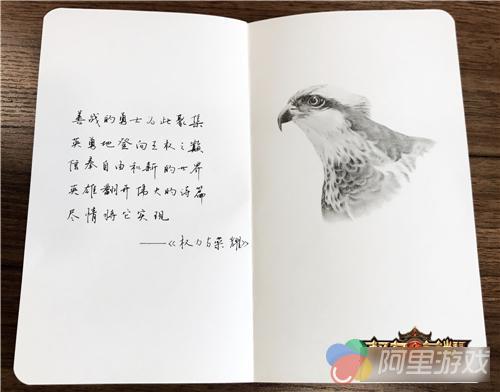 善战的勇士为此聚集
英勇地登向王权之巅
信奉自由和新的世界
英雄翻开伟大的诗篇
尽情将它实现
——《权力与荣耀》
阿里游戏